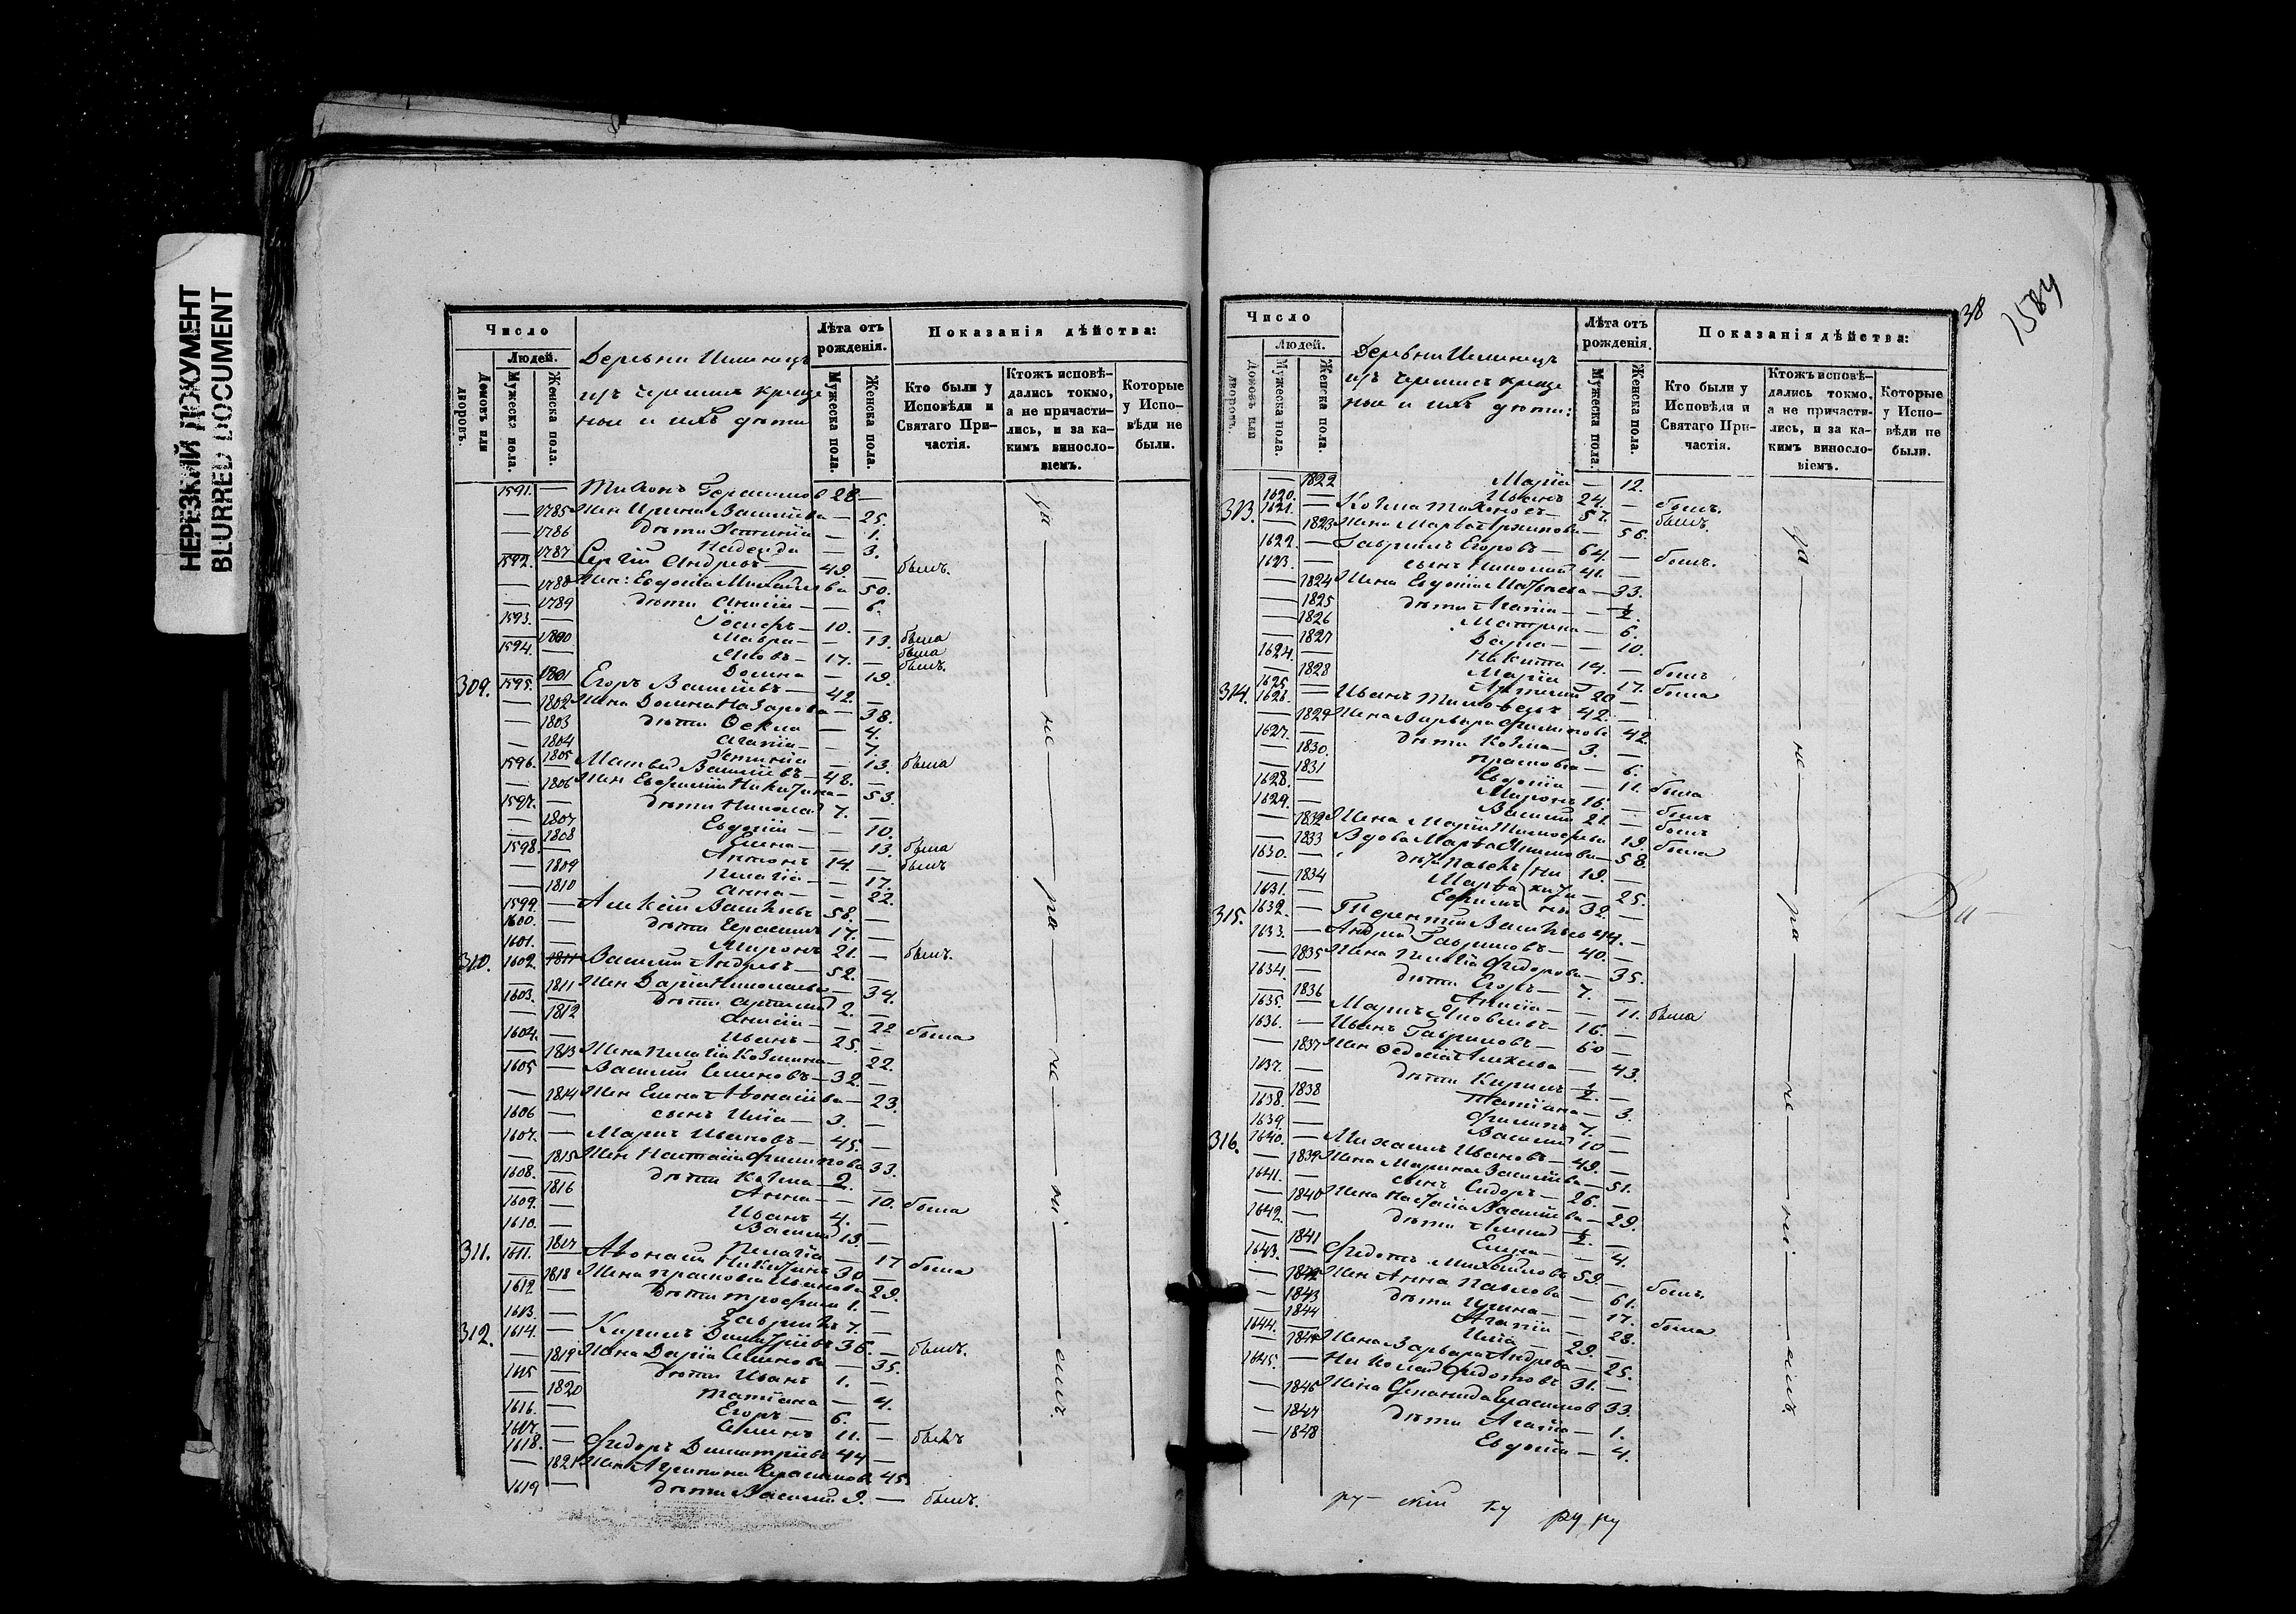 НЕРЕЗКИЙ ДОКУМЕНТ
BLURRED DOCUMENT
Число
Людей.
Домовъ или дворовъ.
Мужеска пола.
Женска пола.
Деревни
изъ черемисъ креще
ные и ихъ дѣти
Лѣта отъ рожденія.
Мужеска пола.
Женска пола.
Показанія дѣйства:
Кто были у Исповѣди и Святаго Причастія.
Ктожъ исповѣдались токмо, а не причастились, и за каким винословіемъ.
Которые у Исповѣди не были.
1591. — Тихонъ Герасимов 28 —
— 1785 Жен Ирина Васильева — 25.
— 1786 Дѣти Устинія — 1.
— 1787 Надежда — 3.
1592. — Сергій Андреевъ — 49. былъ.
— 1788 Жен: Евдокія Михайлова 50.
— 1789 Дѣти Анисія — 6.
1593. — 10. —
— 1800 Мавра — 13. была
1594. — Яковъ — 17. — была
— 1801 Домна — 19. былъ.
309. 1595. — Егоръ Васильевъ — 42. —
— 1802 Жена Домна Назарова — 38.
— 1803 Дѣти Фекла — 4.
— 1804 Агапія — 7.
— 1805 Устинія — 13. была
1596. — Матвей Васильевъ — 48. —
— 1806 Жен Евфимія Никитина — 53.
1597. — Дѣти Николай 7. —
— 1807 Евдокія — 10.
— 1808 Елена — 13. была
1598. — Антонъ 14. — былъ
— 1809 Пелагія — 17.
— 1810 Анна — 22.
1599. — Алексій Васильевъ 58. —
1600. — Дѣти Герасимъ 17. —
1601. — Миронъ 21. — былъ.
310. 1602. 1811 Василій Андреевъ — 52. —
— 1811 Жен Дарія Николаева — 34.
1603. — Дѣти Артемій 2. —
— 1812 Анисія — 22 была
1604. — Иванъ — 25. —
— 1813 Жена Пелагія Козмина — 22.
1605 — Василій Семеновъ — 32. —
— 1814 Жен Елена Афонасіева — 23.
1606 — сынъ Илія — 3. —
1607. — Маркъ Ивановъ — 45. —
— 1815 Жен Наталія Филипова 33.
1608. — Дѣти Козма — 2. —
— 1816 Анна — 10. была
1609. — Иванъ 4. —
1610. — Василій 13. —
— 1817 Пелагія — 17 была
311. 1611. — Афонасій Никитинъ 30 —
— 1818 Жена Прасковія Иванова 29.
1612. — Дѣти Трофимъ 1. —
1613. — Гаврилъ 7. —
312. 1614. — Кирилъ Димитріевъ 36. — былъ.
— 1819 Жена Дарія Семенова — 35.
1615 — Дѣти Иванъ 1. —
— 1820 Татіана — 4.
1616. — Егоръ — 6. —
1617. — Семенъ 11. — былъ
1618. — Федоръ Димитріевъ 44 —
— 1821 Жен Акулина Герасимов 45
1619 — Дѣти Василій 9. — былъ.
да — не — ра — не — ні — емъ.
38
1584
Число
Людей.
Домовъ или дворовъ.
Мужеска пола.
Женска пола.
Деревни
изъ черемисъ креще
ные и ихъ дѣти:
Лѣта отъ рожденія.
Мужеска пола.
Женска пола.
Показанія дѣйства:
Кто были у Исповѣди и Святаго Причастія.
Ктожъ исповѣдались токмо, а не причастились, и за каким винословіемъ.
Которые у Исповѣди не были.
— 1822 Марія — 12.
1620. — Иванъ 24. — былъ.
313. 1621. — Козма Тихоновъ — 57. — былъ.
— 1823 Жена Марѳа — 56.
1622. — Гаврилъ Егоровъ — 64. — былъ.
1623. — сынъ Николай 41. —
— 1824 Жена Евдокія Матѳеева — 33.
— 1825 Дѣти Агапія — ½.
— 1826 Матрена — 6.
— 1827 Дарія — 10.
1624. — Никита 14. — былъ
— 1828 Марія — 17. была
1625. — Артемій 20 —
314. 1626. — Иванъ 42. —
— 1829 Жена Варвара Филипова 42.
1627. — Дѣти Козма — 3. —
— 1830. Прасковія — 6.
— 1831 Евдокія — 11. была
1628. — Миронъ 16. — былъ
1629. — Василій 21. — былъ
— 1832 Жена Марія Тимофеева 19. была
— 1833 Вдова Марѳа — 58.
1630. — Дѣти Павелъ Ни 19. —
— 1834 Марѳа кити — 25.
1631. — Ефимъ ны 32. —
315. 1632. — Терентій Васильевъ 44. —
1633. — Андрей Гавриловъ — 40. —
— 1835 Жена Пелагія Федорова — 35.
1634. — Дѣти Егоръ — 7. —
— 1836 Анисія — 11. была
1635. — Маркъ Яковлевъ — 16. —
1636. — Иванъ Гавриловъ — 60 —
— 1837 Жен Федосія Алексеева — 43.
1637. — Дѣти Кирилъ — ½. —
— 1838 Татіана — 3.
1638. — Филипъ 7. —
1639. — Василій 10 —
316. 1640. — Михаилъ Ивановъ — 49. —
— 1839 Жена Марина Васильева — 51.
1641. — сынъ Сидоръ — 26. —
— 1840 Жена Наталія Васильева — 29.
1642. — Дѣти Алексій ½. —
— 1841 Елена — 4.
1643. — Федотъ Михайловъ 59. — былъ.
— 1842 Жен Анна Павлова — 61.
— 1843 Дѣти Ирина — 17. была
— 1844 Агапія — 28.
1644. — Илія — 29. —
— 1844 Жена Варвара Андреева — 25.
1645. — Николай Федотовъ 31. —
— 1846 Жена Степанида Герасимов 33.
— 1847 Дѣти Агапія — 1.
— 1848 Евдокія — 4.
да — не — ра — не — ні — емъ
ру — скій ку ру ру